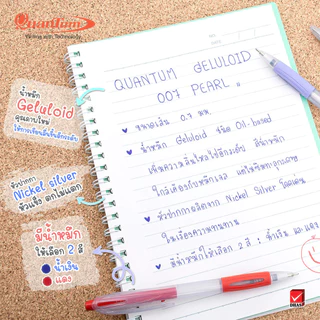 Quantum
Writing with Technology
น้ำหมึก
Geluloid
คุณภาพใหม่
ให้การเขียนลื่นขึ้นอีกระดับ
หัวปากกา
Nickel silver
หัวแข็ง ตกไม่แตก
มีน้ำหมึก
ให้เลือก 2 สี
น้ำเงิน
แดง
QUANTUM GELULOID
007 PEARL
ขนาดเส้น 0.7 มม.
น้ำหมึก Geluloid ชนิด Oil-based
เพิ่มความลื่นไหลไปอีกระดับ สีน้ำหมึก
ใกล้เคียงกับหมึกเจล
หัวปากกาผลิตจาก Nickel Silver โดดเด่น
ในเรื่องความทนทาน
มีน้ำหมึกให้เลือก 2 สี : น้ำเงิน และ แดง
DHAS